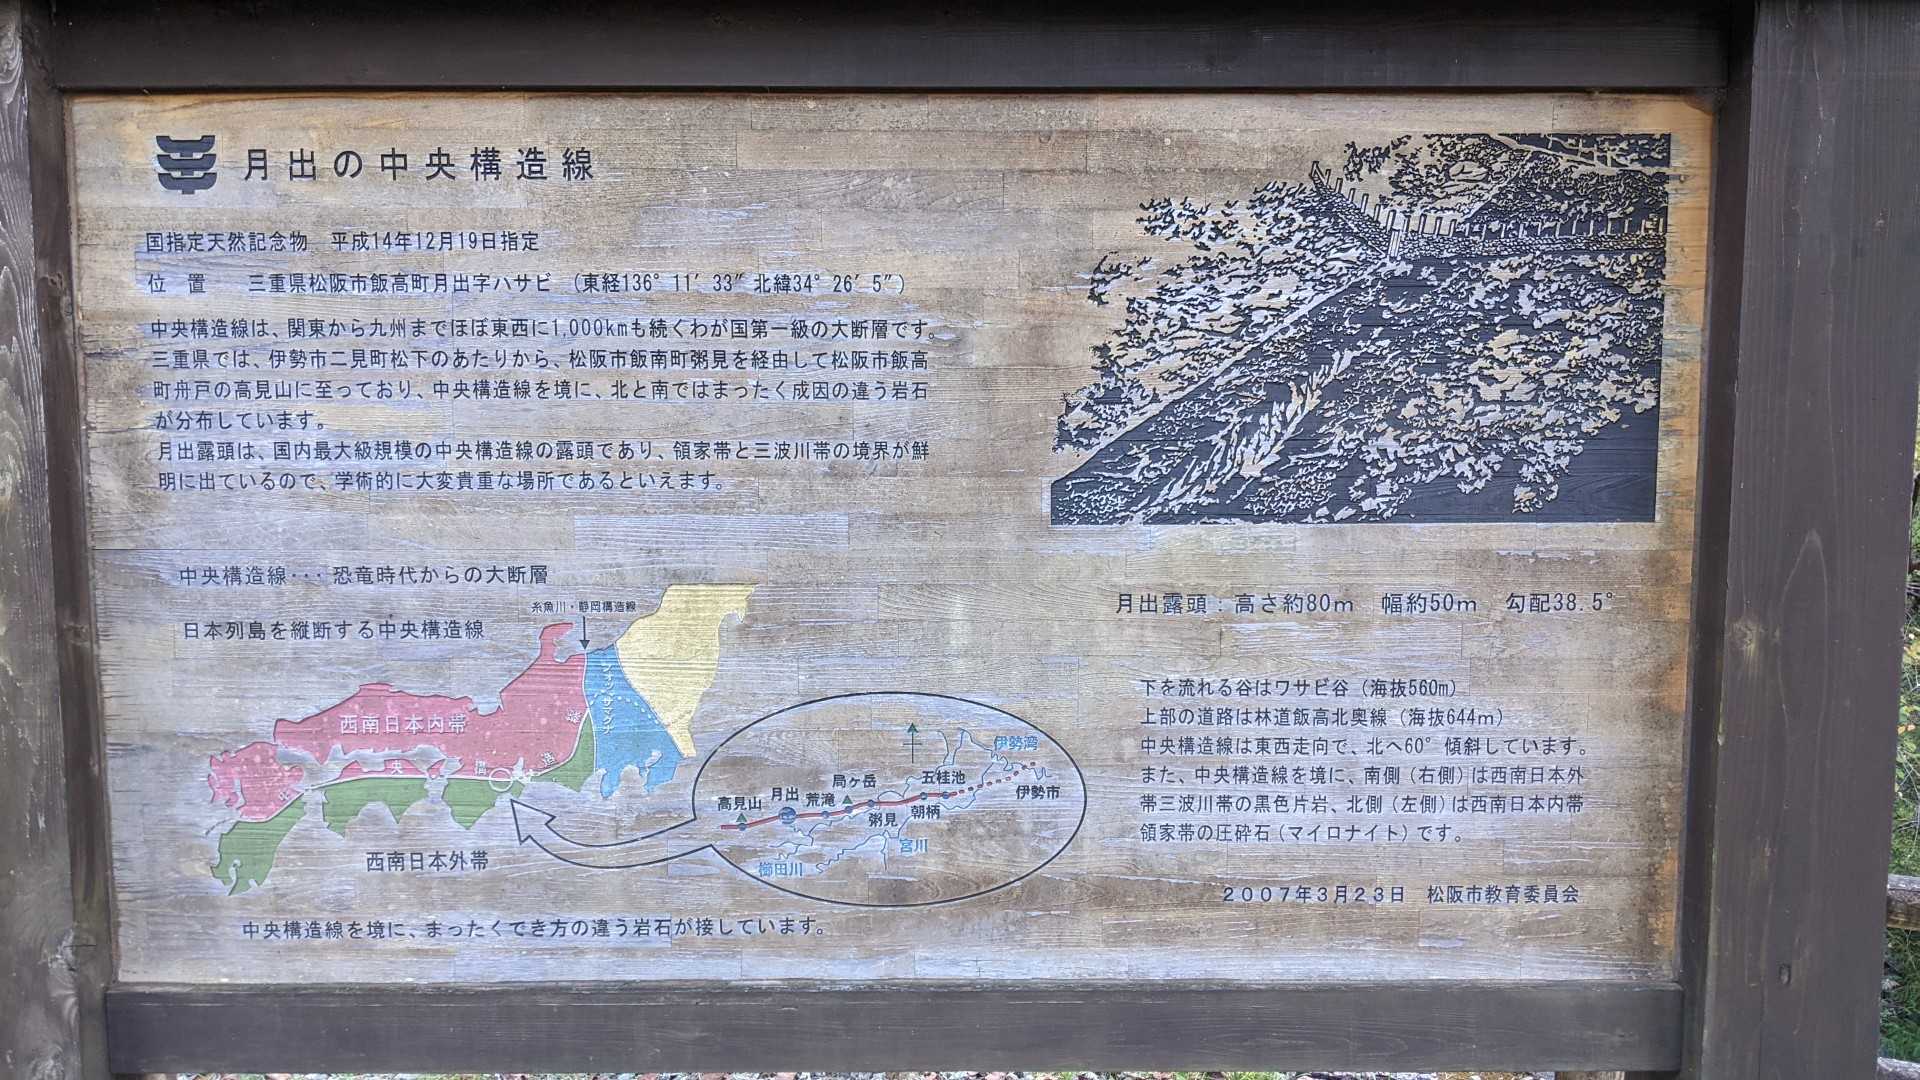 月出の中央構造線
国指定天然記念物　平成14年12月19日指定
位　置　　三重県松阪市飯高町月出字ハサビ　（東経136°11′33″北緯34°26′5″）
中央構造線は、関東から九州までほぼ東西に1,000kmも続くわが国第一級の大断層です。
三重県では、伊勢市二見町松下のあたりから、松阪市飯南町粥見を経由して松阪市飯高
町舟戸の高見山に至っており、中央構造線を境に、北と南ではまったく成因の違う岩石
が分布しています。
月出露頭は、国内最大級規模の中央構造線の露頭であり、領家帯と三波川帯の境界が鮮
明に出ているので、学術的に大変貴重な場所であるといえます。
中央構造線･･･恐竜時代からの大断層
日本列島を縦断する中央構造線
糸魚川・静岡構造線
フォッサマグナ
西南日本内帯
中央構造線
西南日本外帯
高見山
月出
荒滝
局ヶ岳
粥見
五桂池
朝柄
伊勢湾
伊勢市
宮川
櫛田川
中央構造線を境に、まったくでき方の違う岩石が接しています。
月出露頭：高さ約80m　幅約50m　勾配38.5°
下を流れる谷はワサビ谷（海抜560m）
上部の道路は林道飯高北奥線（海抜644m）
中央構造線は東西走向で、北へ60°傾斜しています。
また、中央構造線を境に、南側（右側）は西南日本外
帯三波川帯の黒色片岩、北側（左側）は西南日本内帯
領家帯の圧砕石（マイロナイト）です。
２００７年３月２３日　松阪市教育委員会